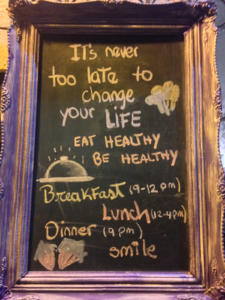 It's never
too late to
change
your LIFE
EAT HEALTHY
BE HEALTHY
BreakFast (9-12 pm)
Lunch (12-4 pm)
Dinner (9 pm)
smile